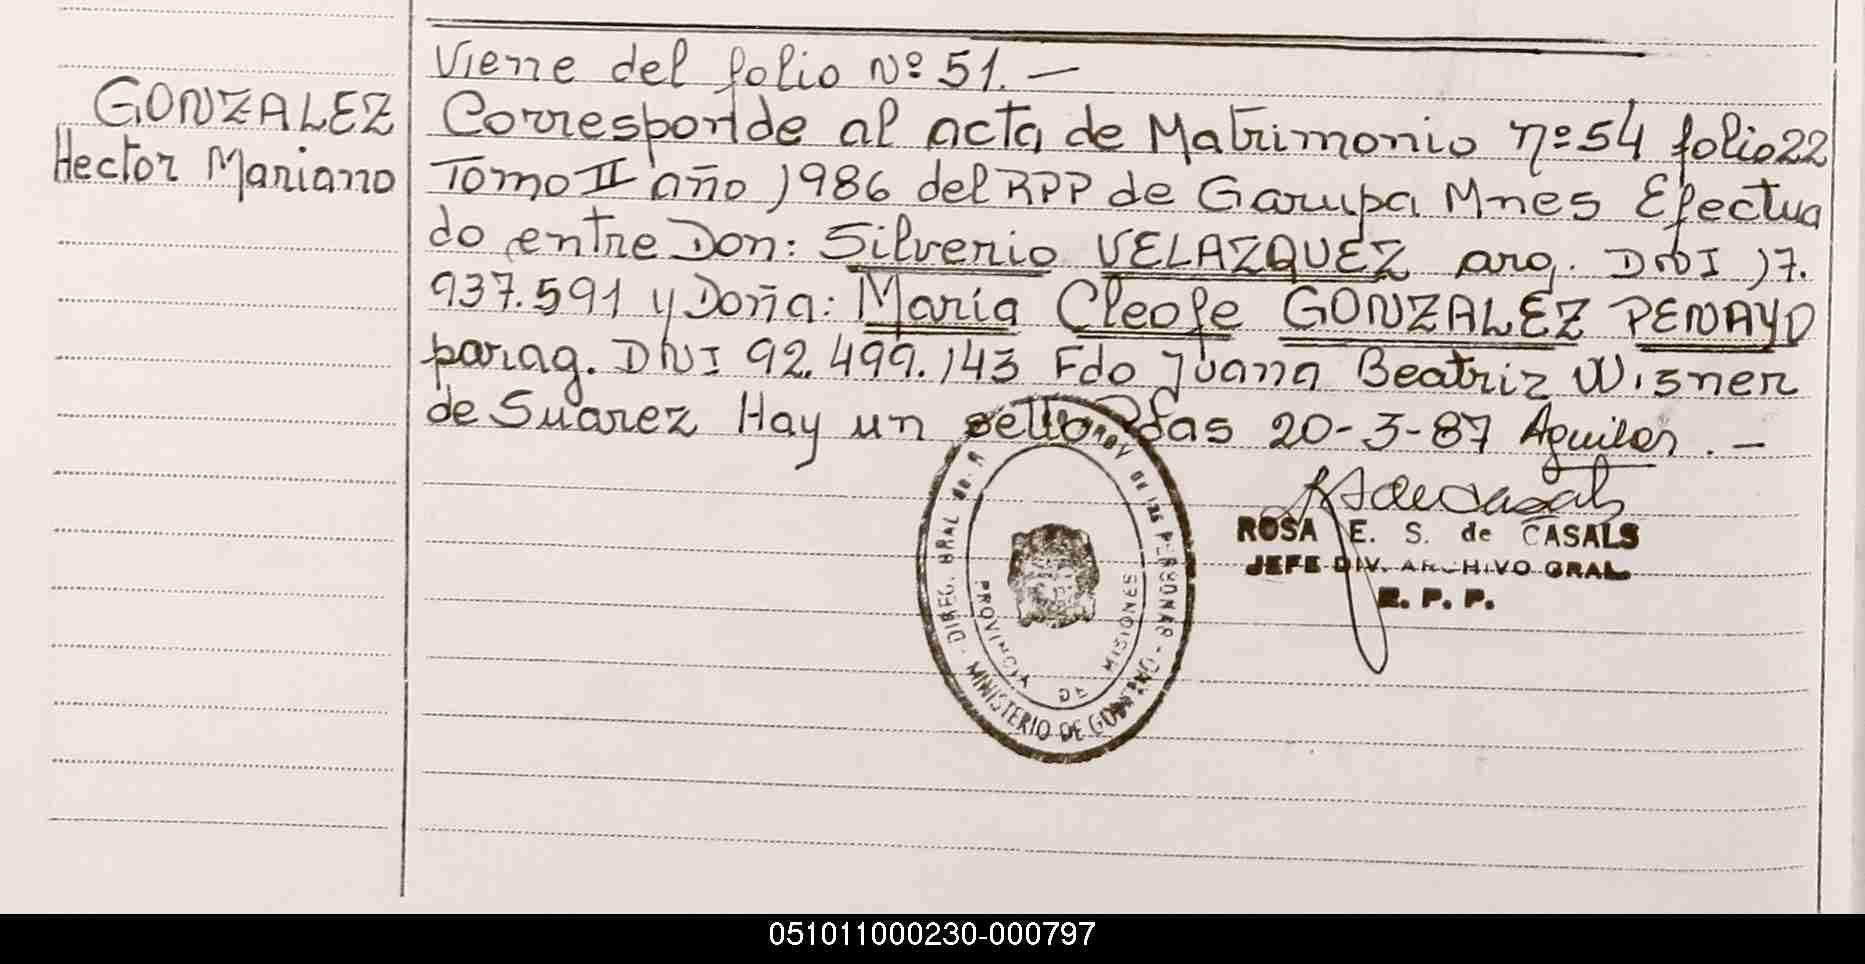 Viene del folio Nº 51. —
GONZALEZ
Hector Mariano
Corresponde al acta de Matrimonio nº 54 folio 22
Tomo II año 1986 del RPP de Garupa Mnes Efectua
do entre Don: Silverio VELAZQUEZ arg. DNI 17.
937.591 y Doña: Maria Cleofe GONZALEZ PENAYO
parag. DNI 92.499.143 Fdo Juana Beatriz Wisner
de Suarez Hay un sello Pdas 20-3-87 Aguilar. —
ROSA E. S. de CASALS
JEFE DIV. ARCHIVO GRAL
R. P. P.
DIREC. GRAL de de las PERSONAS - MINISTERIO DE GOBIERNO -
PROVINCIA DE MISIONES
051011000230-000797